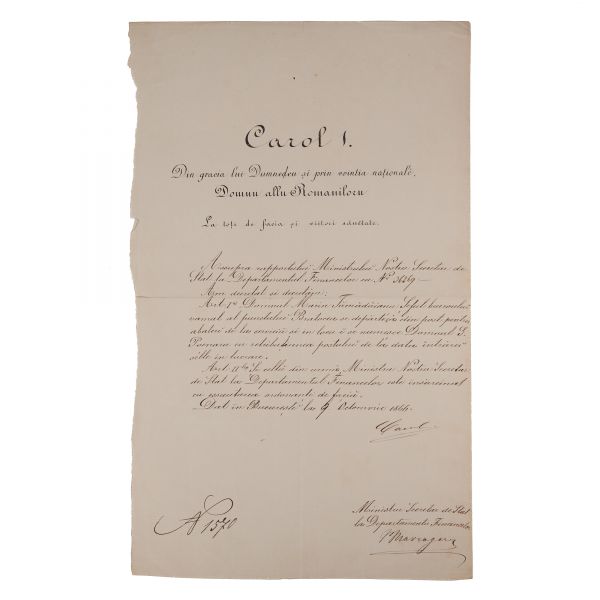 Carol I.
Din gracia lui Dumneḑeu și prin vointia națională,
Domnu allu Romaniloru
La toți de facia și viitori sănetate.
Assupra rapportului Ministrului Nostru Secretar de
Stat la Departamentul Financelor cu No 36269 —
Am decretat și decretăm:
Art. 1iu Domnul Maior Șeful biuroului
vamal al punctului Bratovoia se depărtéză din post pentru
abateri de la și în loc-i se numesce Domnul G.
Poenaru cu postului de la data intrărei
séle în lucrare.
Art. II lea Și cel din urmă, Ministru Nostru Secretar
de Stat la Departamentul Financelor este însărcinat
cu essecutarea ordonanței de faciă.
Dat în Bucuresti la 9 Octomvrie 1866.
Carol
N 1570
Ministru Secretar de Stat
la Departamentu Financelor